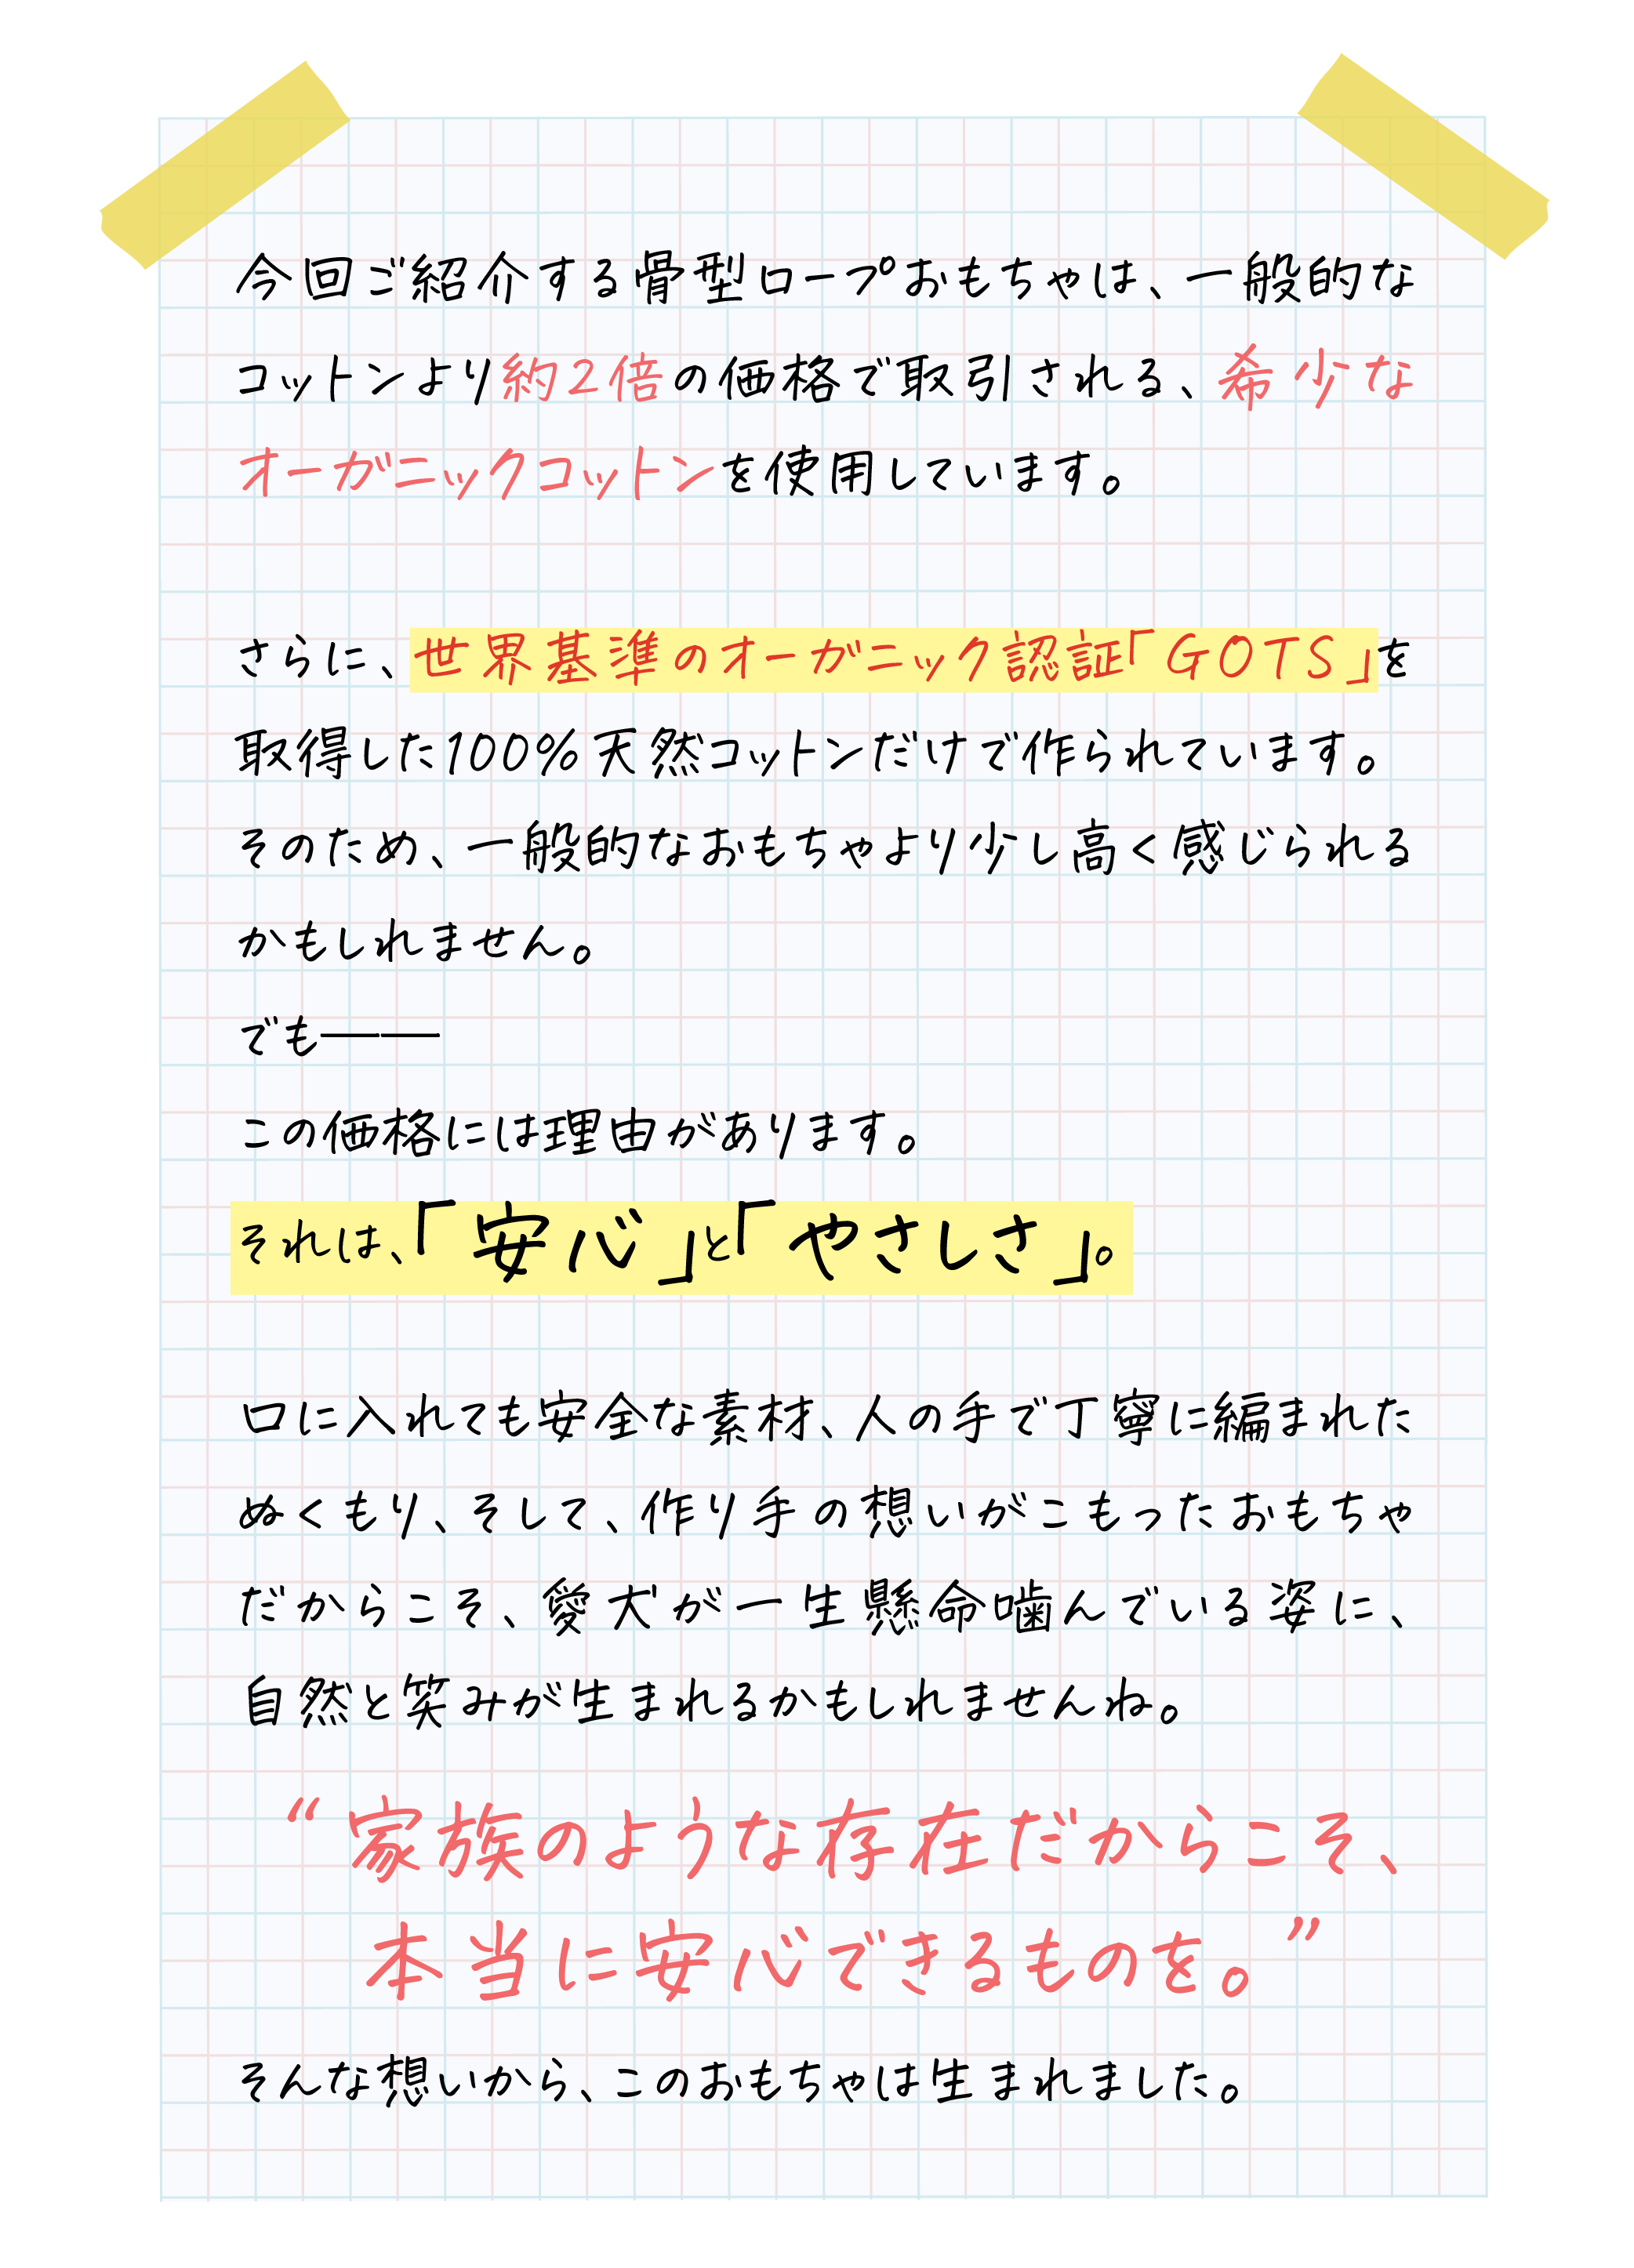 今回ご紹介する骨型ロープおもちゃは、一般的な
コットンより約2倍の価格で取引される、希少な
オーガニックコットンを使用しています。
さらに、世界基準のオーガニック認証「GOTS」を
取得した100%天然コットンだけで作られています。
そのため、一般的なおもちゃより少し高く感じられる
かもしれません。
でも――
この価格には理由があります。
それは、「安心」と「やさしさ」。
口に入れても安全な素材、人の手で丁寧に編まれた
ぬくもり、そして、作り手の想いがこもったおもちゃ
だからこそ、愛犬が一生懸命噛んでいる姿に、
自然と笑みが生まれるかもしれませんね。
“家族のような存在だからこそ、
本当に安心できるものを。”
そんな想いから、このおもちゃは生まれました。